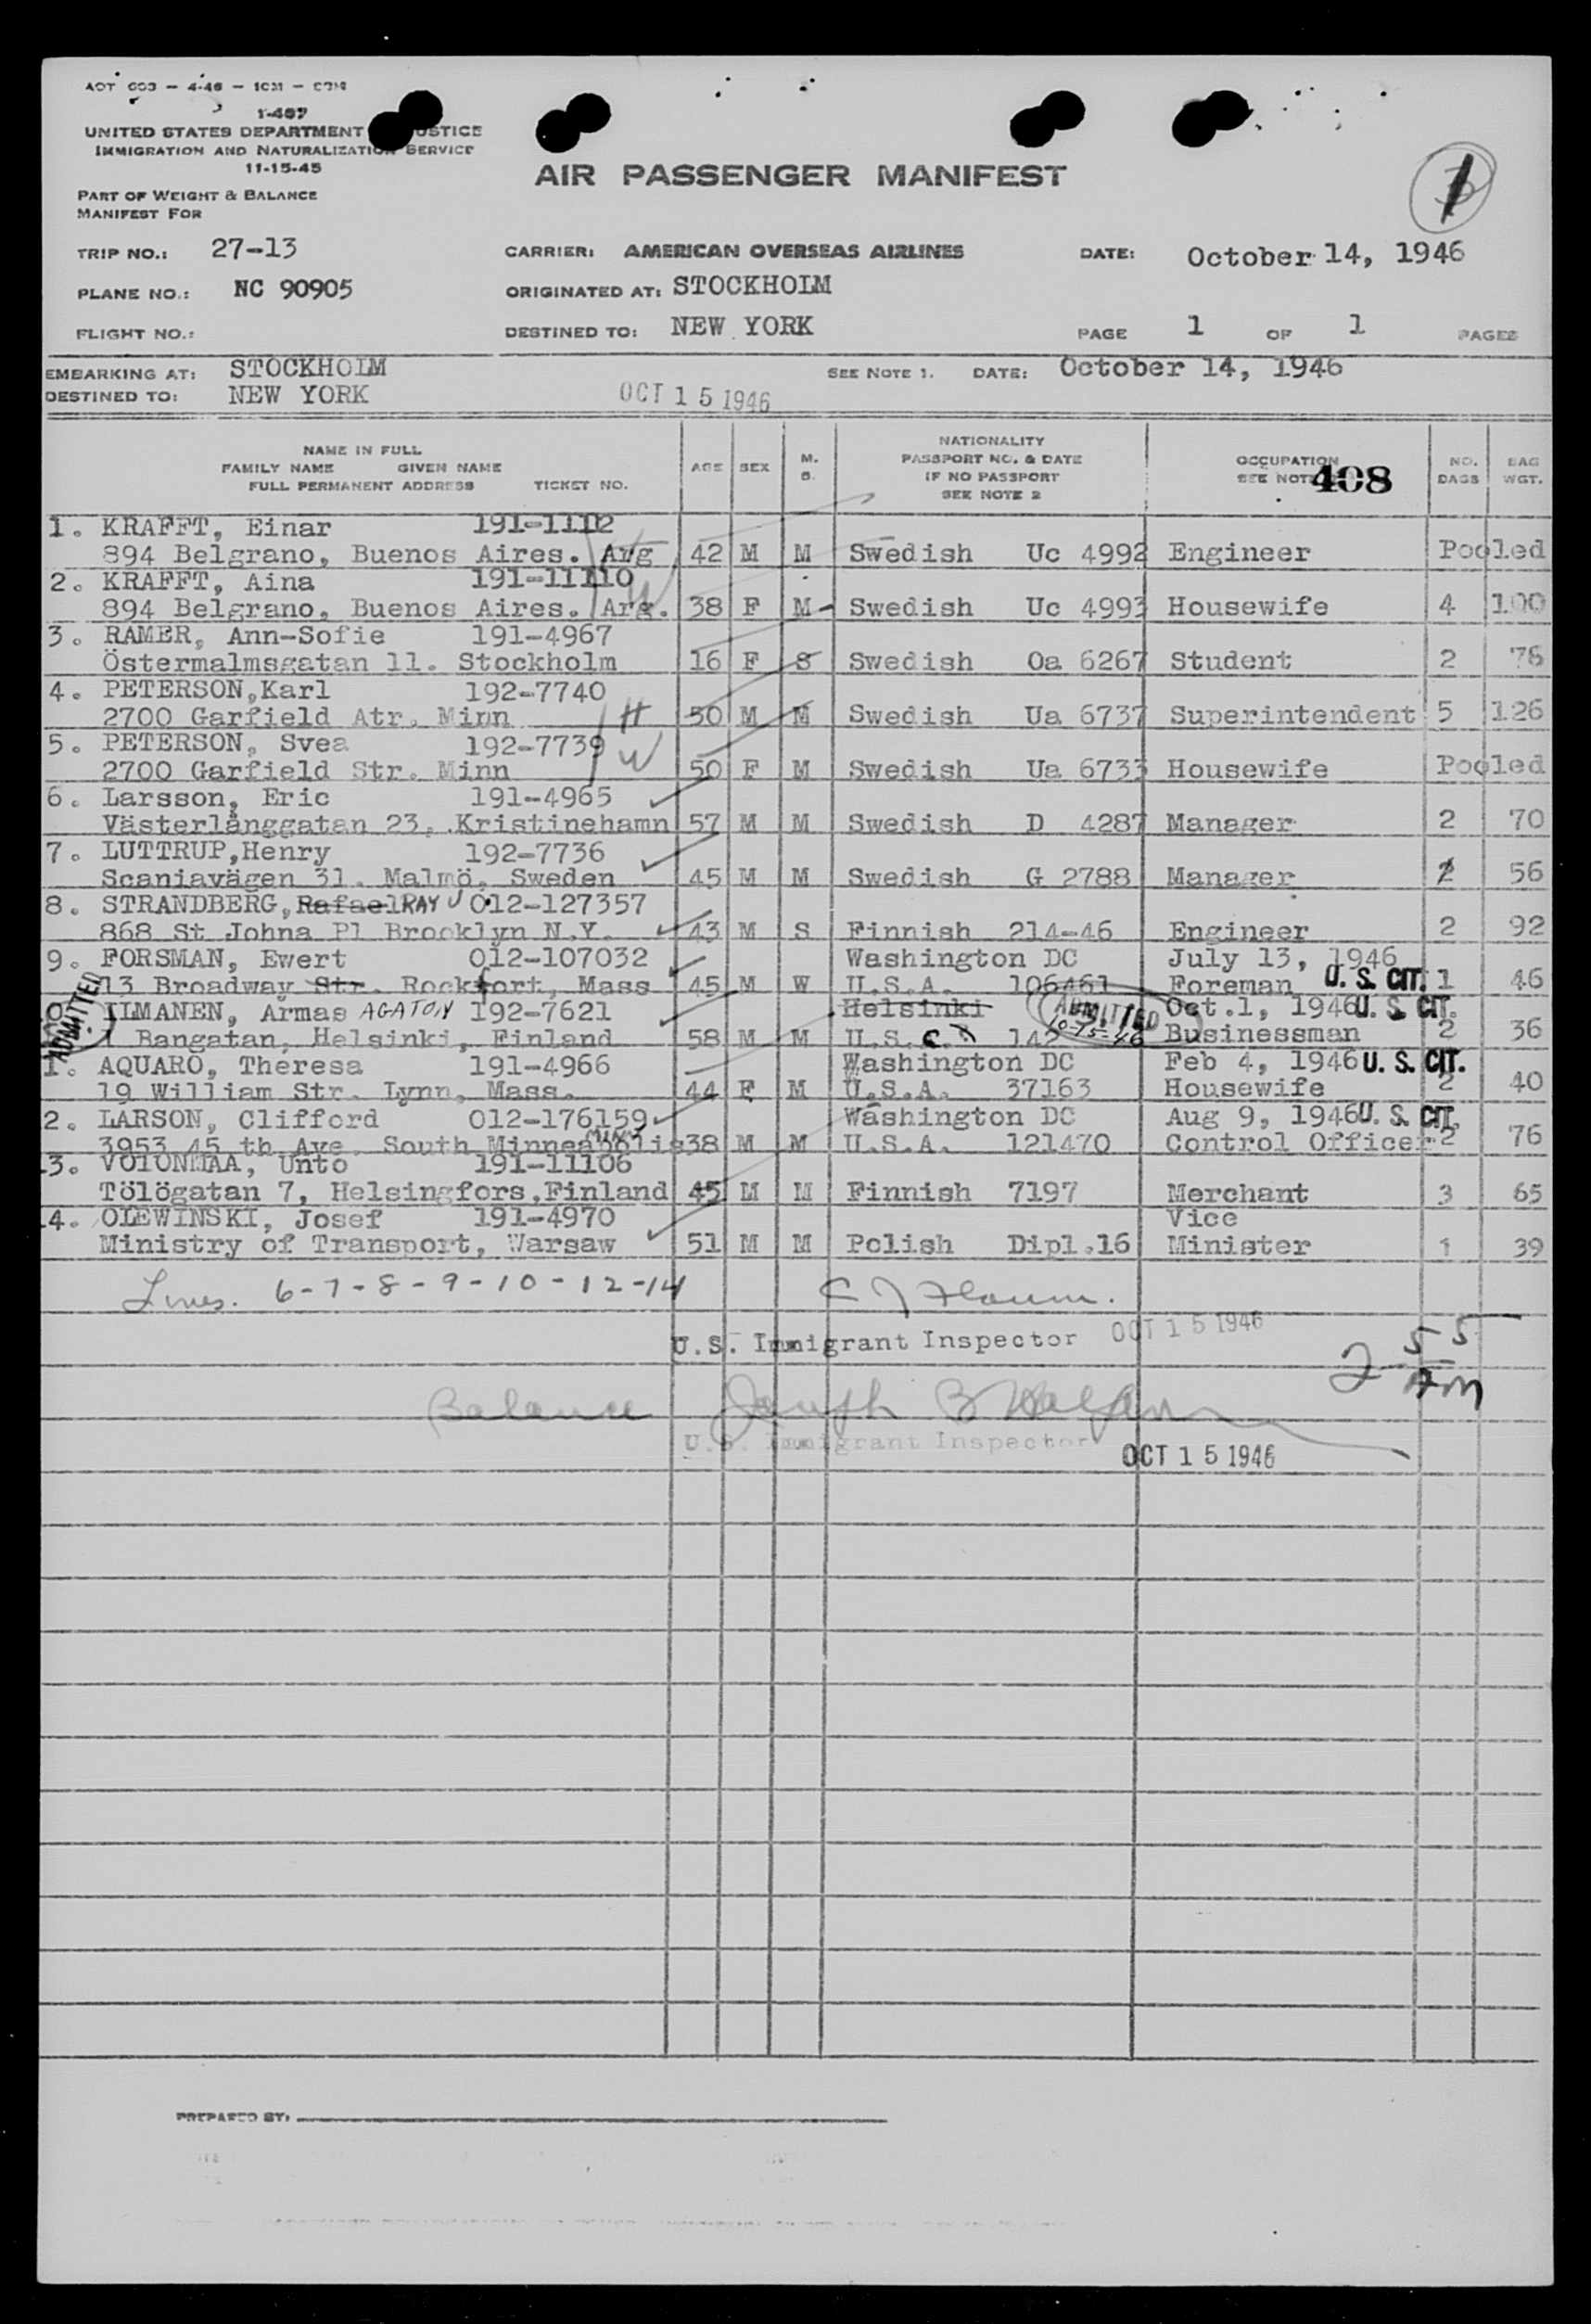 1-467
UNITED STATES DEPARTMENT JUSTICE
IMMIGRATION AND NATURALIZATION SERVICE
11-15-45
AIR PASSENGER MANIFEST
PART OF WEIGHT & BALANCE
MANIFEST FOR
TRIP NO.: 27-13 CARRIER: AMERICAN OVERSEAS AIRLINES DATE: October 14, 1946
PLANE NO.: NC 90905 ORIGINATED AT: STOCKHOLM
FLIGHT NO.: DESTINED TO: NEW YORK PAGE 1 OF 1 PAGES
EMBARKING AT: STOCKHOLM SEE NOTE 1. DATE: October 14, 1946
DESTINED TO: NEW YORK OCT 15 1946
NAME IN FULL
FAMILY NAME GIVEN NAME
FULL PERMANENT ADDRESS TICKET NO. AGE SEX M. S. NATIONALITY PASSPORT NO. & DATE IF NO PASSPORT SEE NOTE 2 OCCUPATION SEE NOTE 408 NO. BAGS BAG WGT.
1. KRAFFT, Einar 191-1112
894 Belgrano, Buenos Aires. Arg 42 M M Swedish Uc 4992 Engineer Pooled
2. KRAFFT, Aina 191-11110
894 Belgrano, Buenos Aires. Arg. 38 F M Swedish Uc 4993 Housewife 4 100
3. RAMER, Ann-Sofie 191-4967
Östermalmsgatan 11. Stockholm 16 F S Swedish Oa 6267 Student 2 76
4. PETERSON,Karl 192-7740
2700 Garfield Atr. Minn H 50 M M Swedish Ua 6737 Superintendent 5 126
5. PETERSON, Svea 192-7739
2700 Garfield Str. Minn W 50 F M Swedish Ua 6733 Housewife Pooled
6. Larsson, Eric 191-4965
Västerlånggatan 23, Kristinehamn 57 M M Swedish D 4287 Manager 2 70
7. LUTTRUP,Henry 192-7736
Scaniavägen 31. Malmö, Sweden 45 M M Swedish G 2788 Manager 2 56
8. STRANDBERG,Rafael RAY 012-127357
868 St Johna Pl Brooklyn N.Y. 43 M S Finnish 214-46 Engineer 2 92
9. FORSMAN, Ewert 012-107032 Washington DC July 13, 1946
13 Broadway Str. Rockfort, Mass 45 M W U.S.A. 106461 Foreman U.S. CIT. 1 46
0. ILMANEN, Armas AGATON 192-7621 Helsinki ADMITTED Oct.1, 1946 U.S. CIT.
ADMITTED 1 Bangatan, Helsinki, Finland 58 M M U.S. 142 10-15-46 Businessman 2 36
1. AQUARO, Theresa 191-4966 Washington DC Feb 4, 1946 U.S. CIT.
19 William Str. Lynn, Mass. 44 F M U.S.A. 37163 Housewife 2 40
2. LARSON, Clifford 012-176159 Washington DC Aug 9, 1946 U.S. CIT.
3953 45 th Ave. South Minneapolis MINN 38 M M U.S.A. 121470 Control Officer 2 76
3. VOIONMAA, Unto 191-11106
Tölögatan 7, Helsingfors,Finland 45 M M Finnish 7197 Merchant 3 65
4. OLEWINSKI, Josef 191-4970 Vice
Ministry of Transport, Warsaw 51 M M Polish Dipl.16 Minister 1 39
Lines. 6-7-8-9-10-12-14
U.S. Immigrant Inspector OCT 15 1946
2 55 AM
Balance Joseph B
U.S. Immigrant Inspector OCT 15 1946
PREPARED BY: